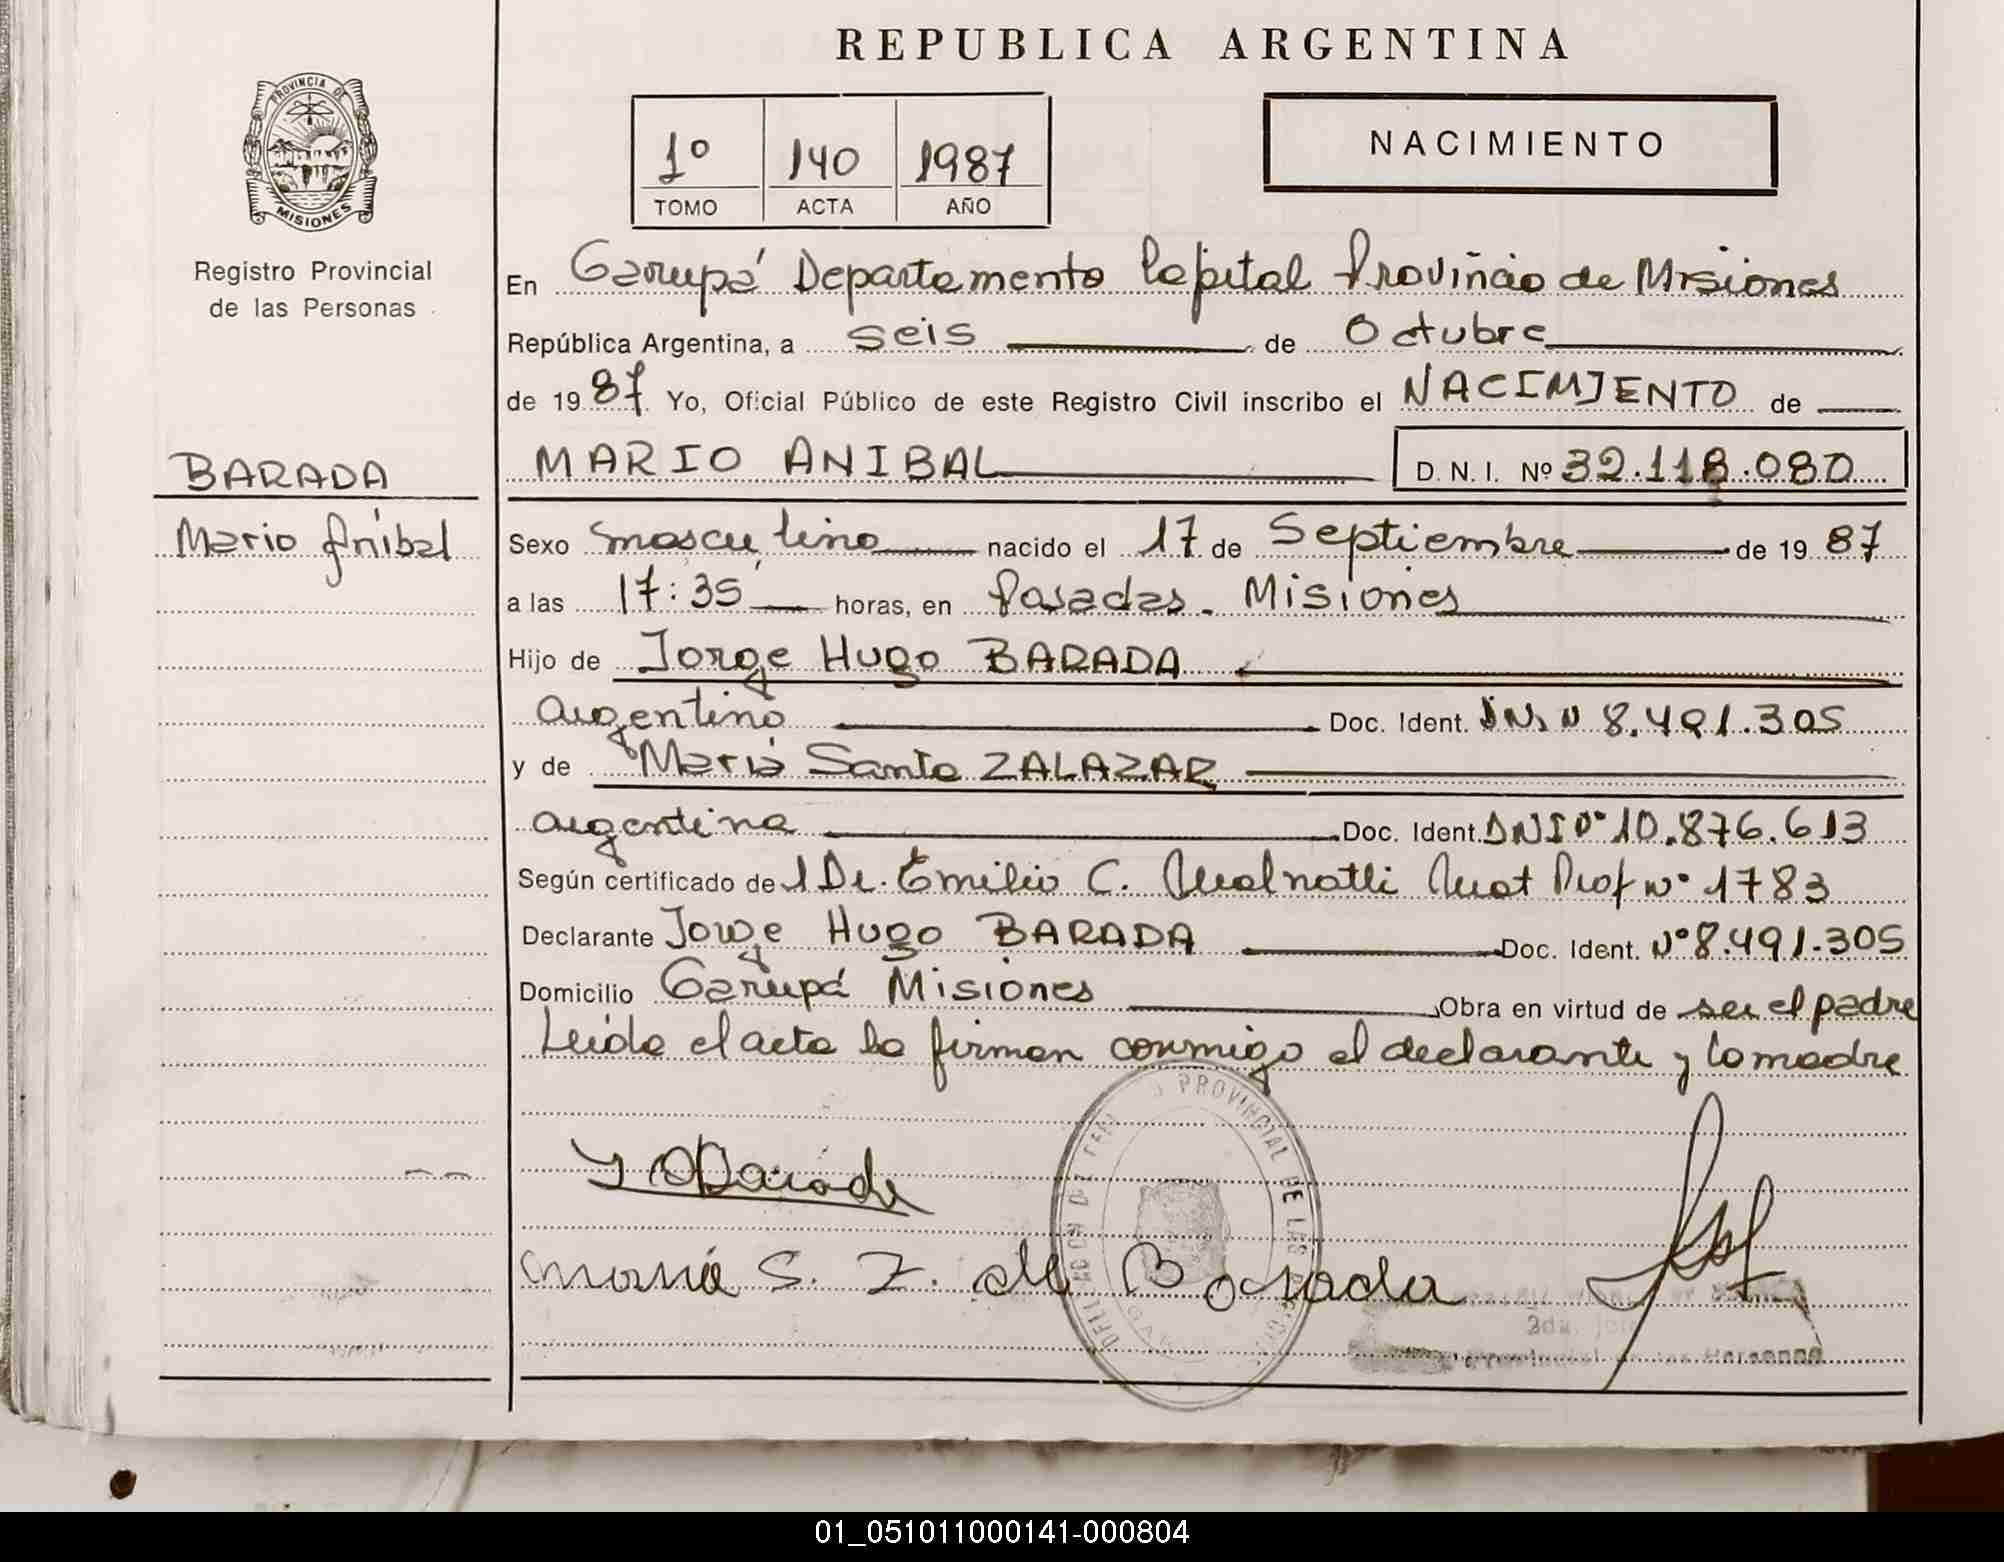 REPUBLICA ARGENTINA
PROVINCIA DE
MISIONES
Registro Provincial
de las Personas
1º 140 1987
TOMO ACTA AÑO
NACIMIENTO
En Garupá Departamento Capital Provincia de Misiones
República Argentina, a seis de Octubre
de 1987 Yo, Oficial Público de este Registro Civil inscribo el NACIMIENTO de
BARADA
MARIO ANIBAL D.N.I. Nº 32.118.080
Mario Aníbal
Sexo masculino nacido el 17 de Septiembre de 1987
a las 17:35 horas, en Posadas - Misiones
Hijo de Jorge Hugo BARADA
argentino Doc. Ident. 8.491.305
y de María Santa ZALAZAR
argentina Doc. Ident. DNI Nº 10.876.613
Según certificado de Dr. Emilio C. Mat Prof Nº 1783
Declarante Jorge Hugo BARADA Doc. Ident. Nº 8.491.305
Domicilio Garupá Misiones Obra en virtud de ser el padre
Leida el acta la firman conmigo el declarante y la madre
PROVINCIAL DE LAS
Maria S. Z. de Barada
2da.
01_051011000141-000804